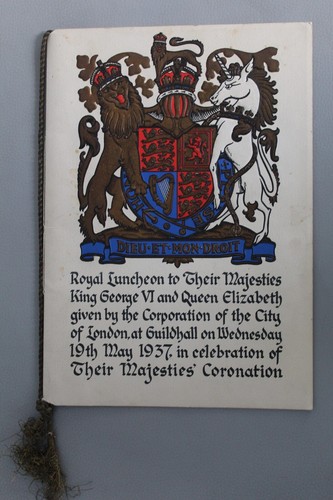 DIEU·ET·MON·DROIT
Royal Luncheon to Their Majesties
King George VI and Queen Elizabeth
given by the Corporation of the City
of London, at Guildhall on Wednesday
19th May 1937, in celebration of
Their Majesties' Coronation